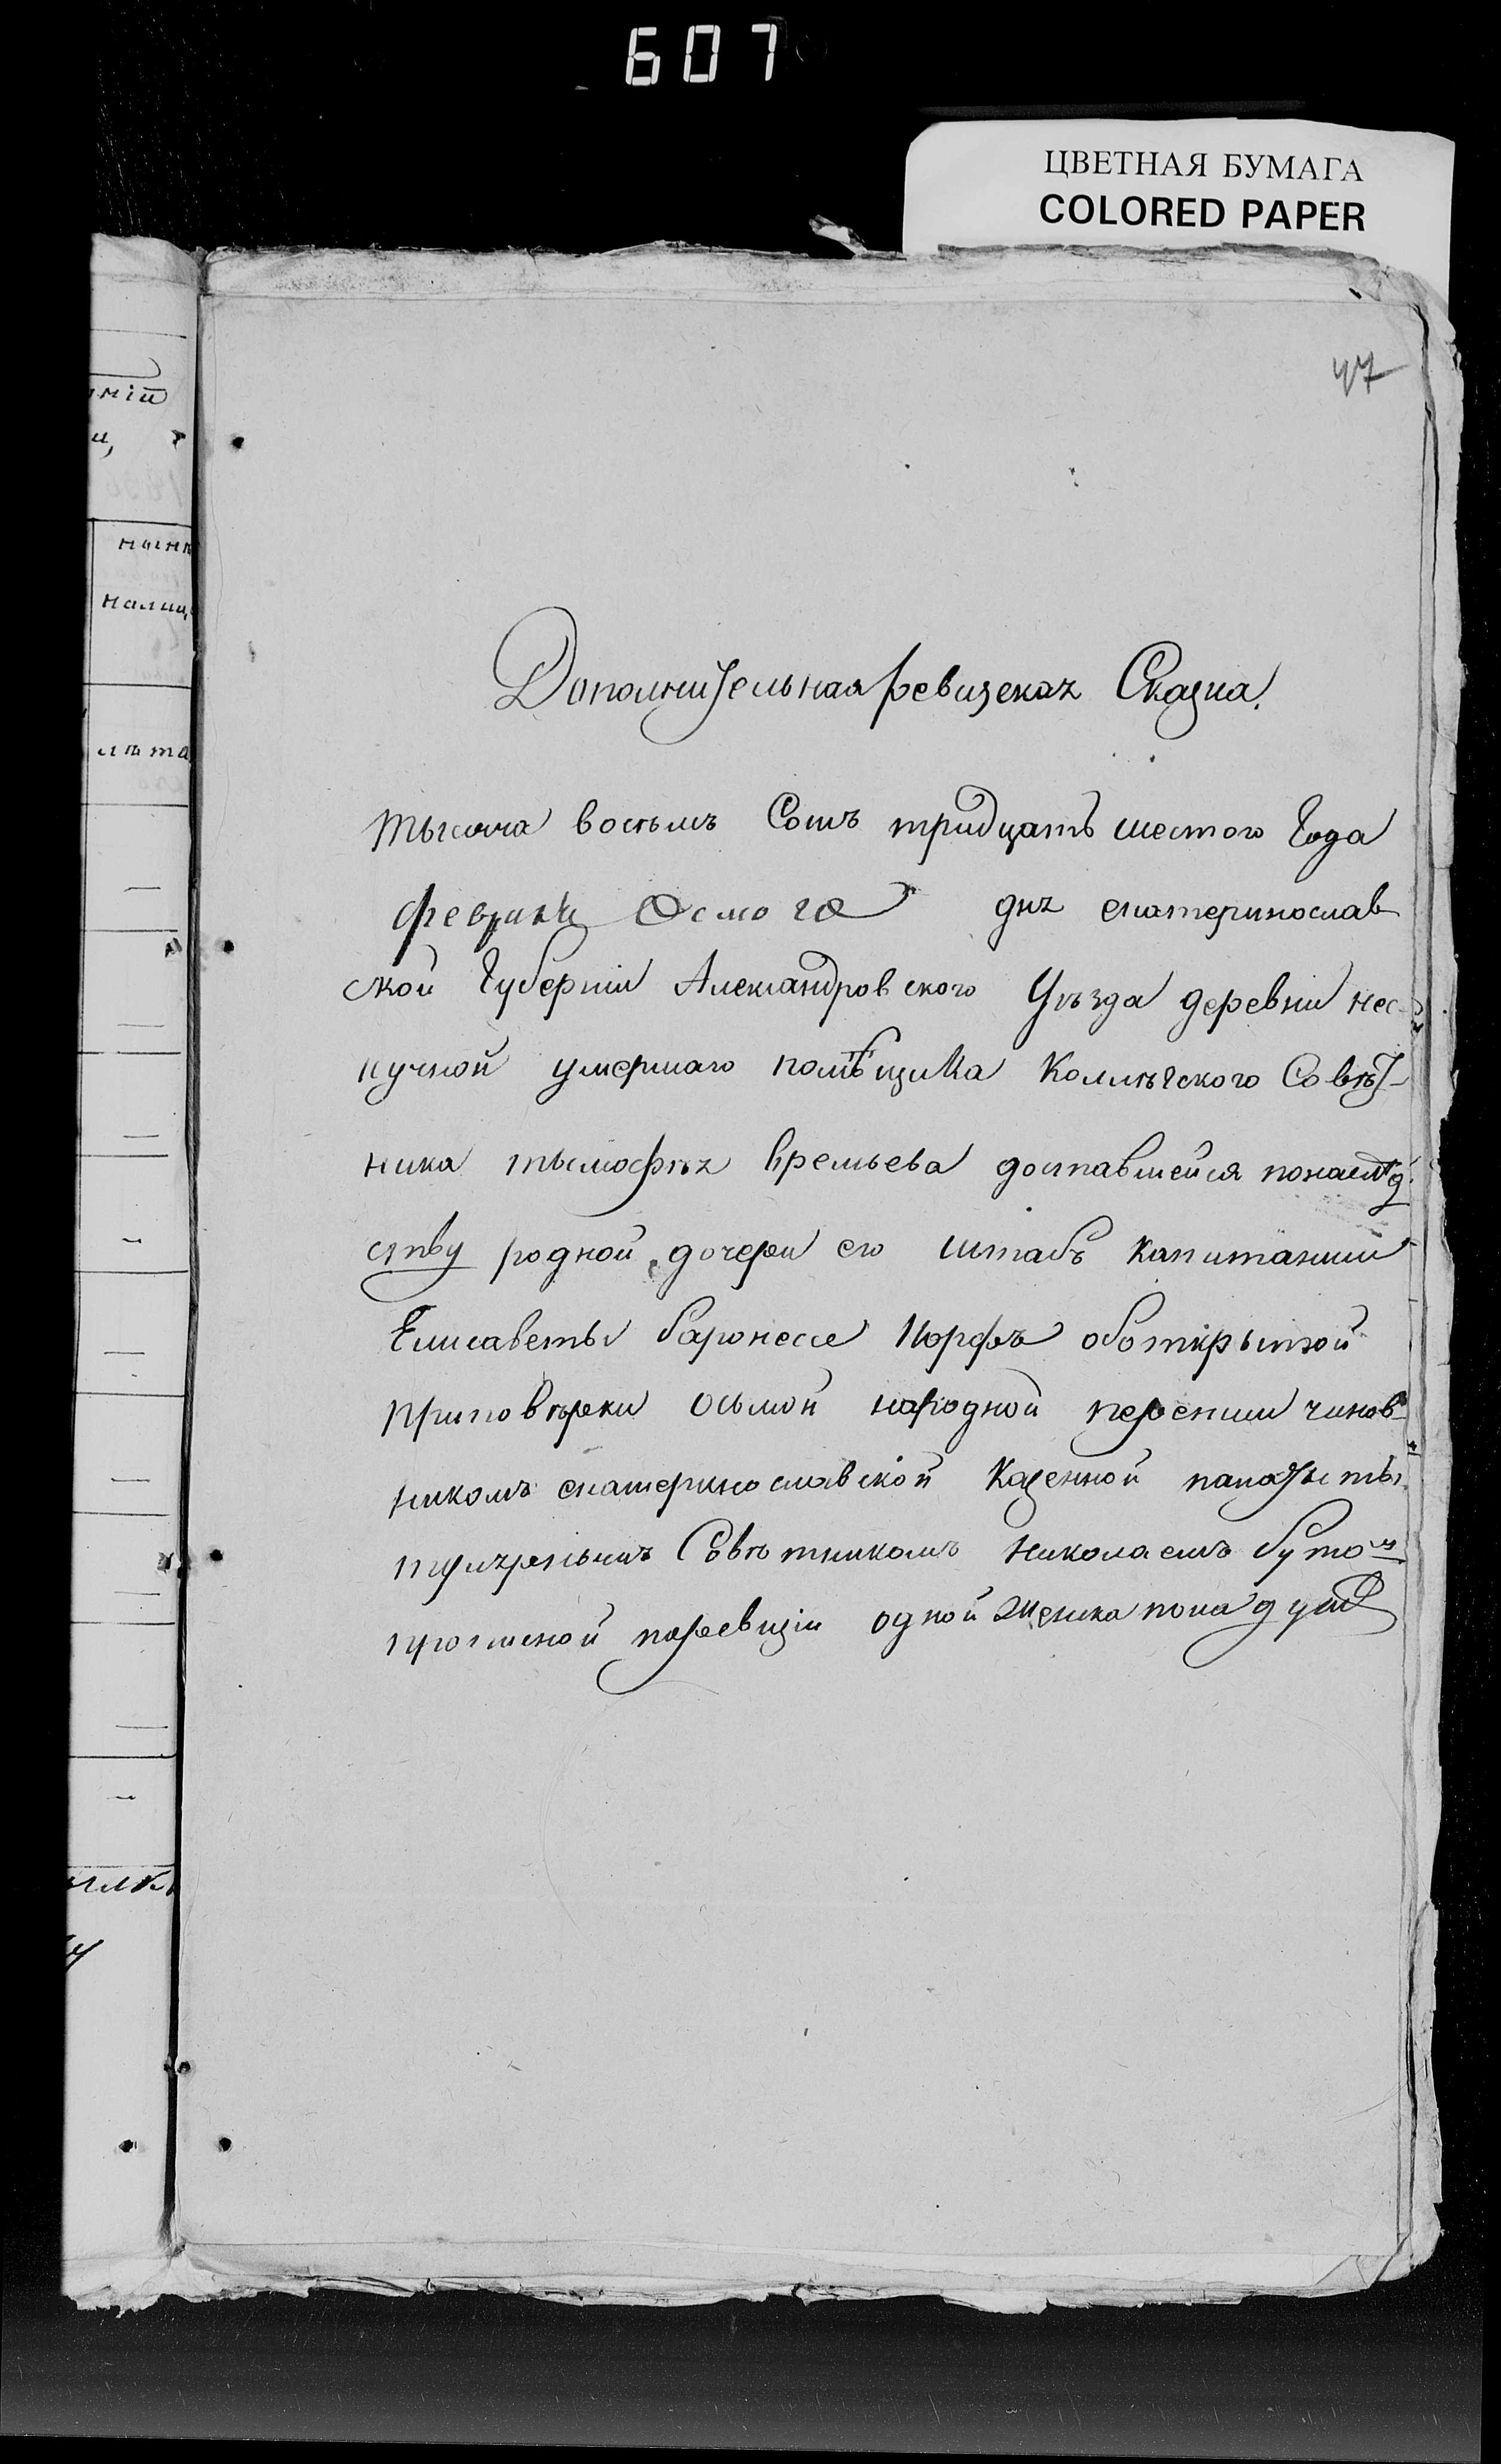 607
ЦВЕТНАЯ БУМАГА
COLORED PAPER
47
Дополнительная ревизская Сказка.
тысяча восемъ Сотъ тридцать шестого Года
февраля Осмого дня екатеринослав
ской Губерніи Александровского Уѣзда деревни нес-
кучной умершаго помѣщика Коллѣгского Совѣт-
ника тымофѣя времьева доставшейся понаслѣд
ству родной дочери его штабъ капитанши
Елисаветы баронессе Корфъ оботкрытой
приповѣрки осьмой народной переписи чинов-
никомъ екатеринославской Казенной палаты ты
тулярнымъ Совѣтникомъ николаемъ
прописной поревизіи одной женска пола душѣ
нынѣ
налиц
лѣта